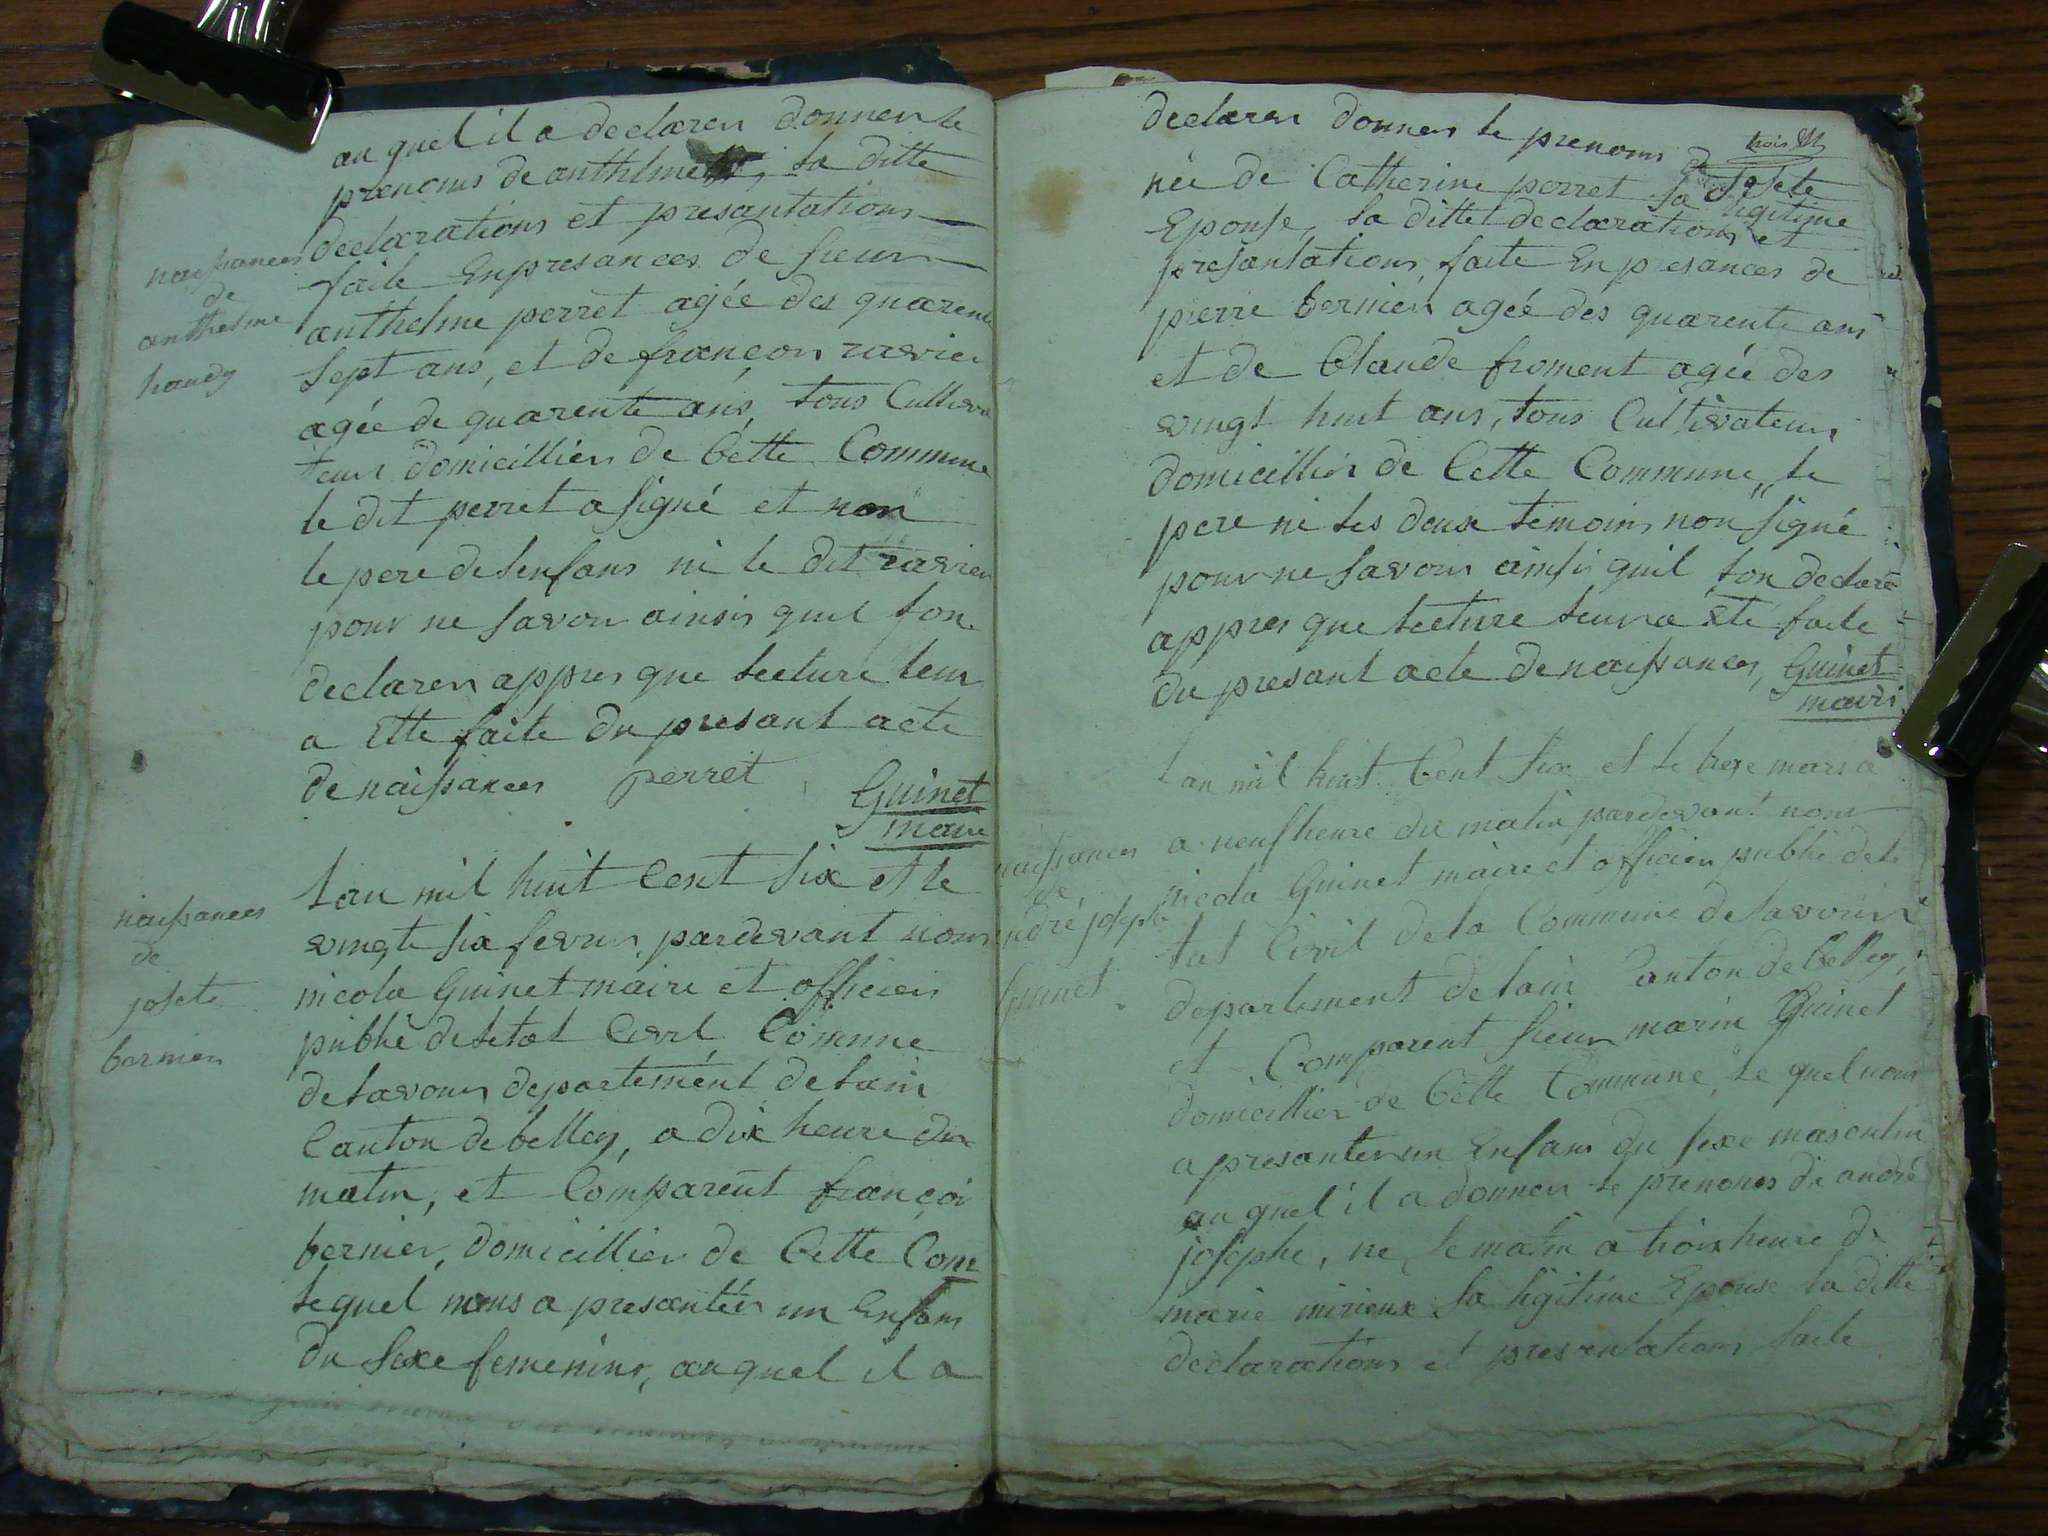 naissances
de
anthelme
handy
auquel il a declarer donner le
prenoms de anthelme, la ditte
declarations et presantations
faite Enpresances de sieur
anthelme perret agée des quarente
sept ans, et de françon ravier
agée de quarente ans, tous Cultiva
teur domicillier de Cette Commune
le dit perret a signé et non
le pere desenfans ni le dit ravier
pour ne savoir ainsis quil son
declarer appres que lecture leur
a Ette faite du presant acte
de naissances perret Guinet
maire
naissances
de
josete
bernier
lan mil huit Cent six et le
vingte six fevrier pardevant nous
nicola Guinet maire et officier
publié deletat Civil Commune
delavours departemént delain
Canton de belley, a dix heure du
matin, et Comparent françoi
bernier, domicillier de Cette Com
lequel nous a presantér un Enfans
du sexe femenins, auquel il a
trois
declarer donner le prenoms de Josete
née de Catherine perret sa legitime
Epouse, la dittet declarations et
presantations, faite Enpresances de
pierre bernier agée des quarente ans
et de Claude froment agée des
vingt huit ans, tous Cultivateurs
domicillier de Cette Commune, le
pere ni les deux temoins non signé
pour ne savoir ainsis quil son declaré
appres que lecture leur a Eté faite
du presant acte de naissances, Guinet
maire
naissances
de
andré josephe
Guinet
lan mil huit Cent six et le treze mars a
a neuf heure du matin pardevant nous
nicola Guinet maire et officier publié dele
tat Civil dela Commune delavours
departement delain Canton de Belley,
et Comparent sieur marin Guinet
domicillier de Cette Commune, le quel nous
a presanter un Enfans du sexe masculin
auquel il a donner le prenoms de andré
josephe, ne le matin a troix heure de
marie mirieux sa ligitime Epouse la ditte
declarations et presentations faite